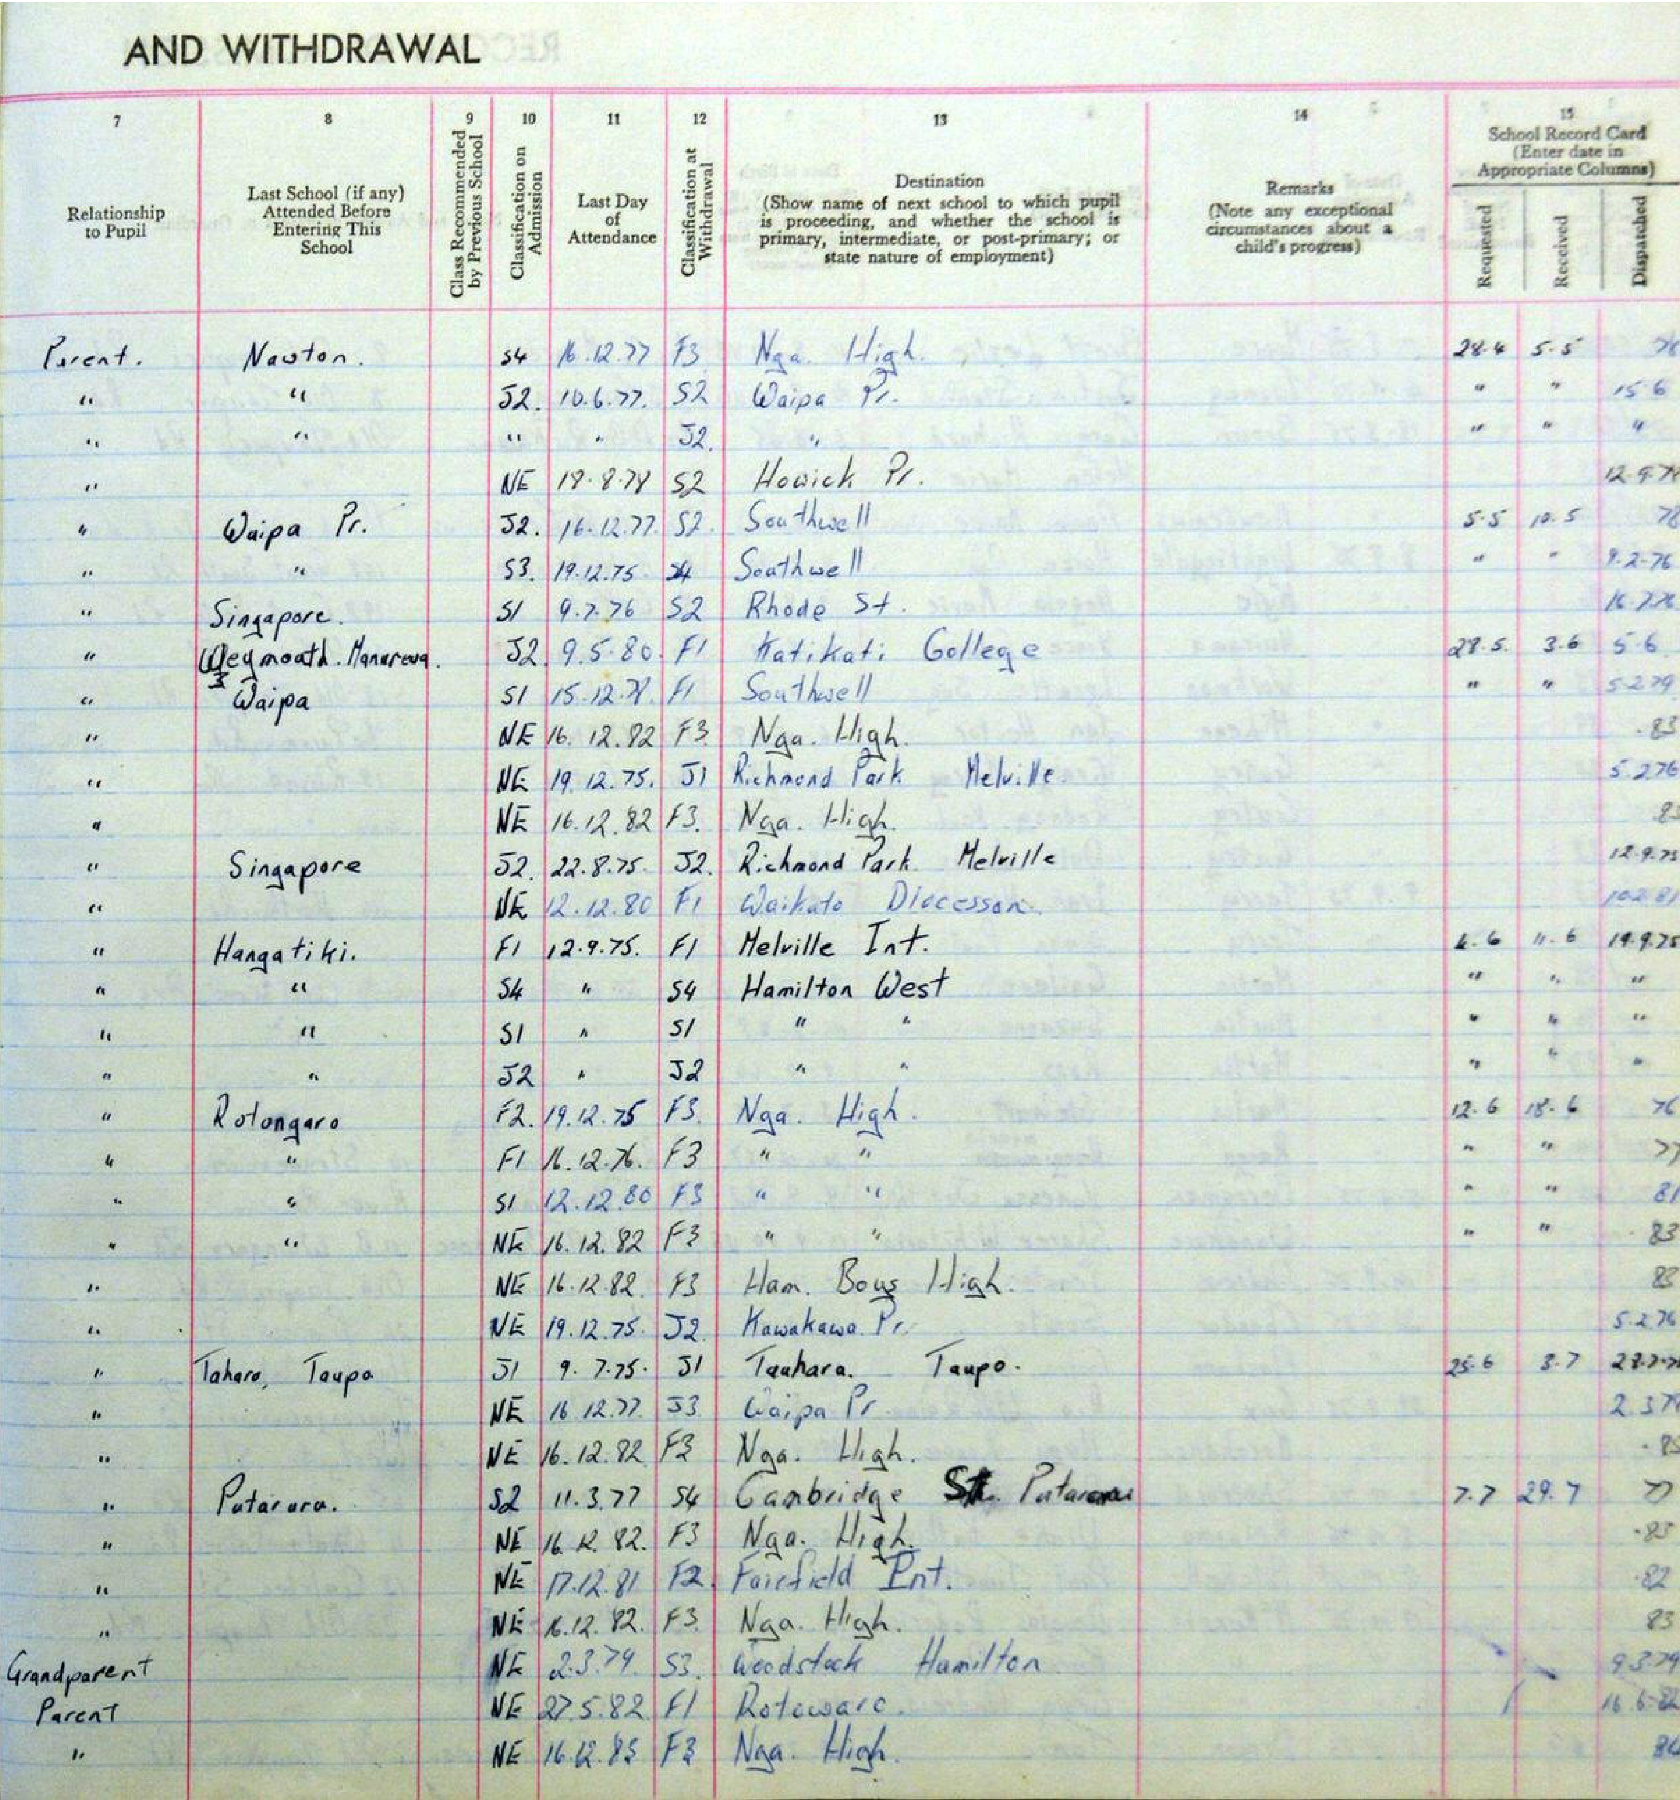 AND WITHDRAWAL
7 8 9 10 11 12 13 14 15
Relationship to Pupil
Last School (if any) Attended Before Entering This School
Class Recommended by Previous School
Classification on Admission
Last Day of Attendance
Classification at Withdrawal
Destination
(Show name of next school to which pupil is proceeding, and whether the school is primary, intermediate, or post-primary; or state nature of employment)
Remarks
(Note any exceptional circumstances about a child's progress)
School Record Card
(Enter date in Appropriate Columns)
Requested Received Dispatched
Parent. Nawton. S4 16.12.77 F3 Nga. High. 28.4 5.5
" " J2. 10.6.77. S2 Waipa Pr. " " 15.6
" " " " J2. " " " "
" NE 18.8.78 S2 Howick Pr. 12.9.78
" Waipa Pr. J2. 16.12.77. S2. Southwell 5.5 10.5 78
" " S3. 19.12.75 S4 Southwell " " 9.2.76
" Singapore. S1 9.7.76 S2 Rhode St. 16.7.76
" Weymouth. Manurewa. J2 9.5.80. F1 Katikati College 28.5. 3.6 5.6
" Waipa S1 15.12.78. F1 Southwell " " 5.2.79
" NE 16.12.82 F3 Nga. High. .83
" NE 19.12.75. J1 Richmond Park Melville 5.2.76
" NE 16.12.82 F3. Nga. High. 83
" Singapore J2. 22.8.75. J2. Richmond Park Melville 12.9.75
" NE 12.12.80 F1 Waikato Diocesson. 10.2.81
" Hangatiki. F1 12.9.75. F1 Melville Int. 4.6 11.6 19.9.75
" " S4 " S4 Hamilton West " " "
" " S1 " S1 " " " " "
" " J2 " J2 " " " " "
" Rotongaro F2. 19.12.75 F3. Nga. High. 12.6 18.6 76
" " F1 16.12.76. F3 " " " " 77
" " S1 12.12.80 F3 " " " " 81
" " NE 16.12.82 F3 " " " " .83
" NE 16.12.82. F3 Ham. Boys High. 83
" NE 19.12.75. J2. Kawakawa Pr. 5.2.76
" Tahara, Taupo J1 9.7.75. J1 Tauhara. Taupo. 25.6 3.7
" NE 16.12.77. J3 Waipa Pr. 2.3.78
" NE 16.12.82 F3 Nga. High. .83
" Putaruru. S2 11.3.77 S4 Cambridge St. Putaruru 7.7 29.7 77
" NE 16.12.82. F3 Nga. High. .83
" NE 17.12.81 F2. Fairfield Int. .82
" NE 16.12.82. F3. Nga. High. 83
Grandparent NE 2.3.79 S3. Woodstock Hamilton 9.3.79
Parent NE 27.5.82. F1 Rotowaro. 16.6.82
" NE 16.12.83 F3 Nga. High. 84